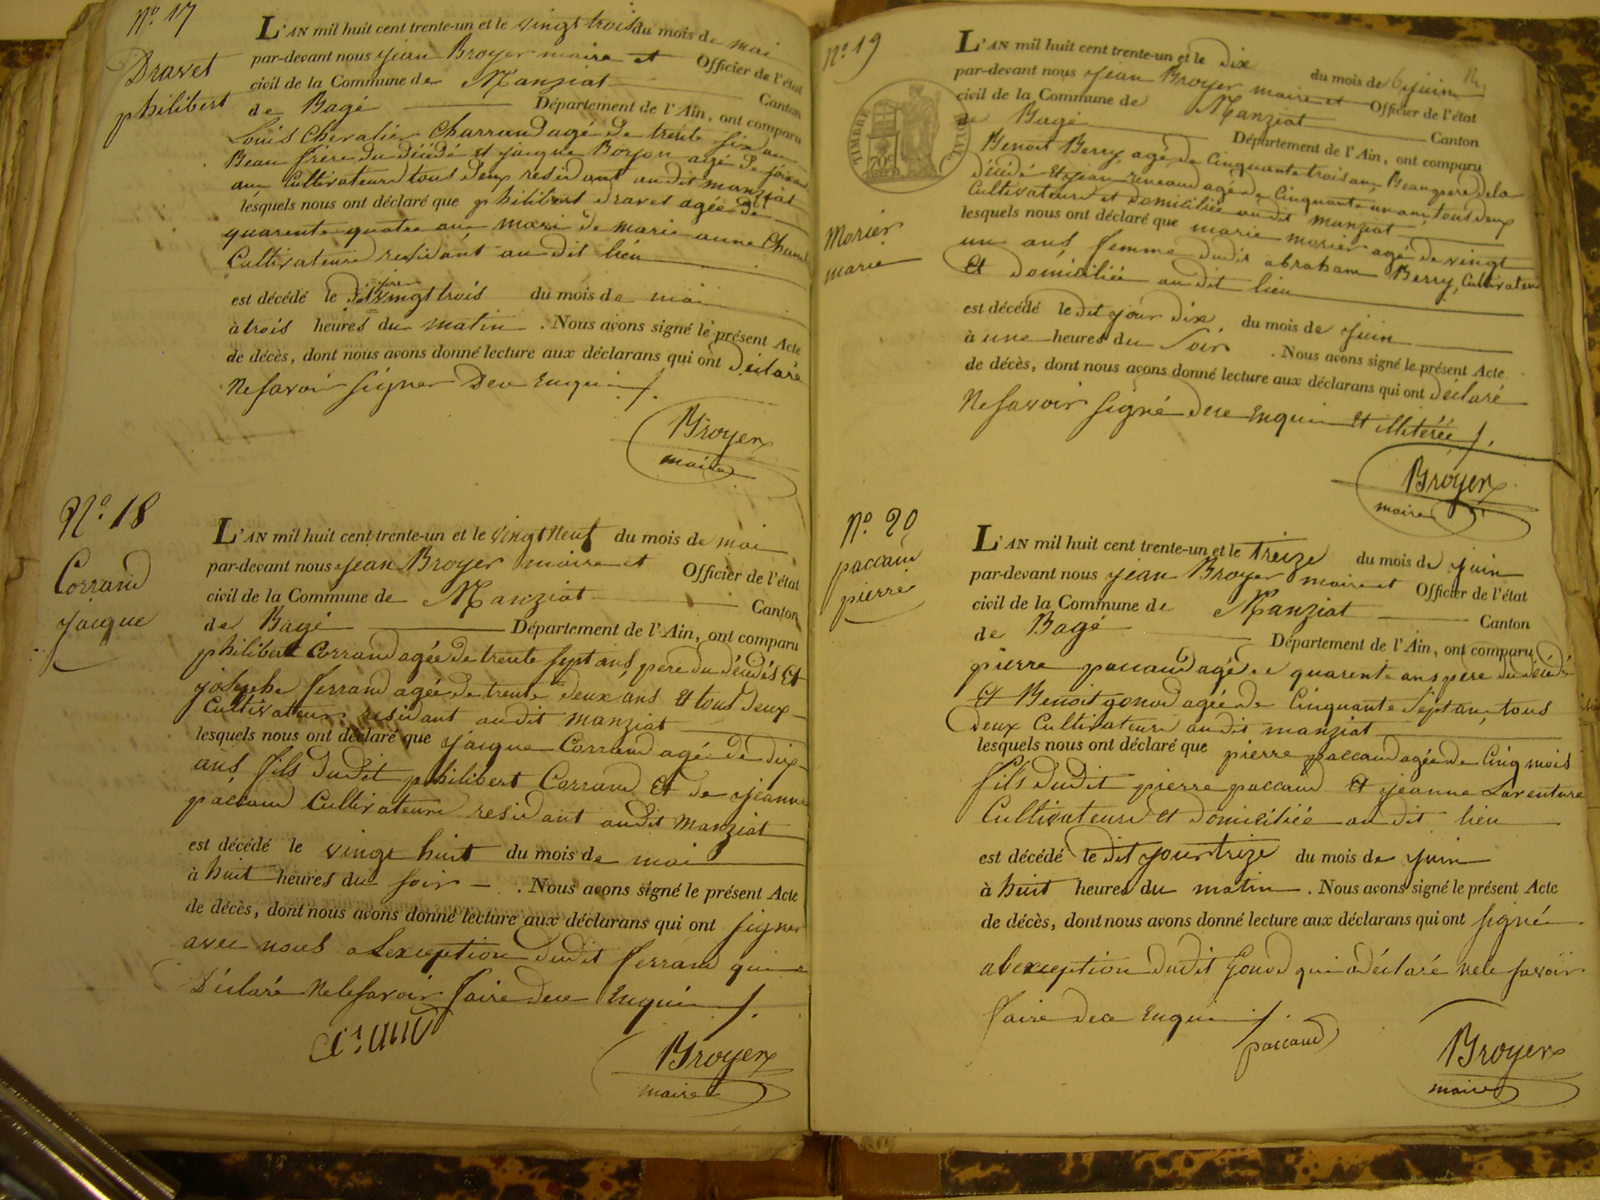 N.° 17
Dravet
philibert
L'AN mil huit cent trente-un et le vingt trois du mois de mai
par-devant nous Jean Broyer maire et Officier de l'état
civil de la Commune de Manziat Canton
de Bagé Département de l'Ain, ont comparu
Louis Chevalier Charrand agé de trente six ans
Beau frère du décédé et jacque Boyon agé de
aux Cultivateurs tous deux residant audit manziat
lesquels nous ont déclaré que philibert dravet agée de
quarente quatre ans mari de marie anne
Cultivateurs residant au dit lieu
est décédé le dit jour vingt trois du mois de mai
à trois heures du matin. Nous avons signé le présent Acte
de décès, dont nous avons donné lecture aux déclarans qui ont déclaré
ne savoir signer de ce Enquis
Broyer
maire
N.° 18
Corrand
jacque
L'AN mil huit cent trente-un et le vingt neuf du mois de mai
par-devant nous jean Broyer maire et Officier de l'état
civil de la Commune de Manziat Canton
de Bagé Département de l'Ain, ont comparu
philibert Corrand agée de trente sept ans père du décédés Et
josephe ferrand agée de trente deux ans Et tous deux
Cultivateurs residant audit manziat
lesquels nous ont déclaré que jacque Corrand agée de dix
ans fils dudit philibert Corrand Et de jeanne
paccaud Cultivateurs residant audit manziat
est décédé le vingt huit du mois de mai
à huit heures du soir. Nous avons signé le présent Acte
de décès, dont nous avons donné lecture aux déclarans qui ont signer
avec nous a Lexception dudit ferrand qui a
Déclaré ne le savoir faire de ce Enquis
Broyer
maire
N.° 19
morier
marie
TIMBRE ROYAL
L'AN mil huit cent trente-un et le dix du mois de juin
par-devant nous jean Broyer maire et Officier de l'état
civil de la Commune de Manziat Canton
de Bagé Département de l'Ain, ont comparu
Benoit Berry agé de Cinquante trois ans Beau pere de la
décédé Et jean renaud agée de Cinquante un ans tous deux
Cultivateurs et domiciliée audit manziat
lesquels nous ont déclaré que marie morier agé de vingt
un ans, femme dudit abraham Berry, Cultivateur
Et domiciliée audit lieu
est décédé le dit jour dix du mois de juin
à une heures du Soir. Nous avons signé le présent Acte
de décès, dont nous avons donné lecture aux déclarans qui ont déclaré
Ne savoir signé de ce Enquis Et illiterée
Broyer
maire
N.° 20
paccaud
pierre
L'AN mil huit cent trente-un et le treize du mois de juin
par-devant nous jean Broyer maire et Officier de l'état
civil de la Commune de Manziat Canton
de Bagé Département de l'Ain, ont comparu
pierre paccaud agé de quarente ans père du décédé
Et Benoit gonod agée de Cinquante Sept ans, tous
deux Cultivateurs audit manziat
lesquels nous ont déclaré que pierre paccaud agée de Cinq mois
fils dudit pierre paccaud Et jeanne Laventure
Cultivateurs Et domiciliée au dit lieu
est décédé le dit jour trize du mois de juin
à huit heures du matin. Nous avons signé le présent Acte
de décès, dont nous avons donné lecture aux déclarans qui ont signé
a lexception dudit Gonod qui a déclaré ne le savoir
faire de ce Enquis
paccaud
Broyer
maire